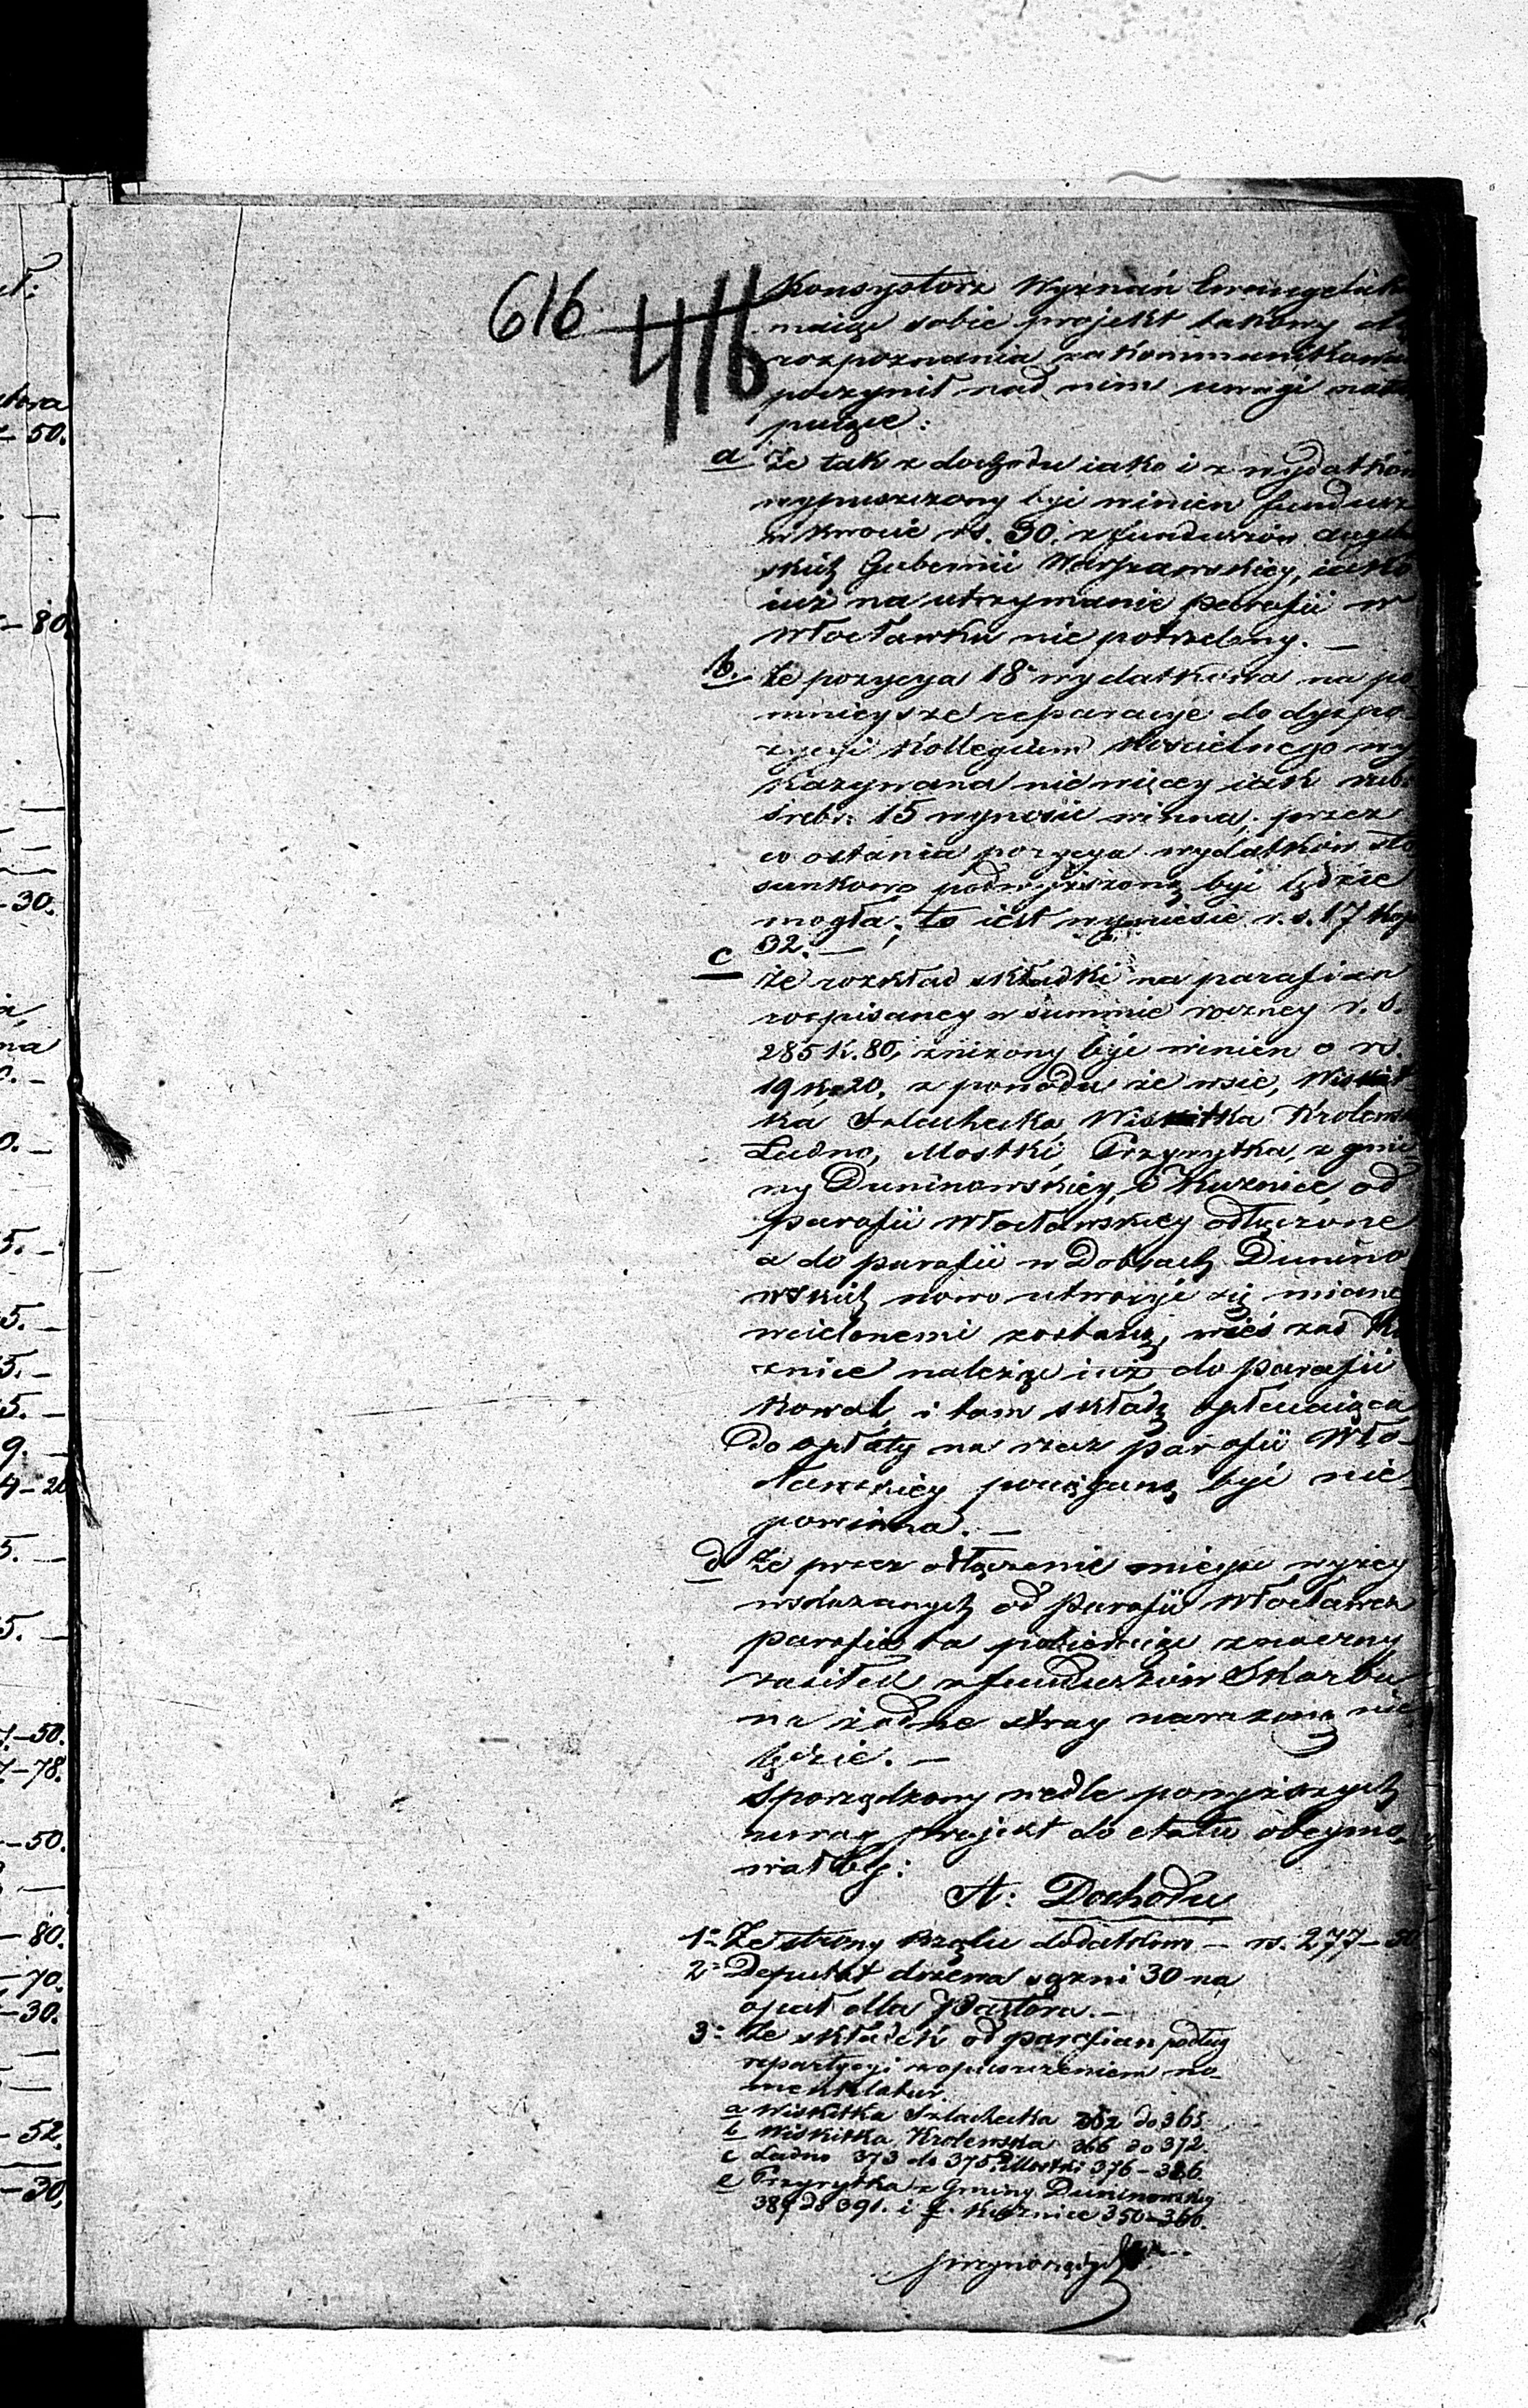 616 416
Konsystorz Wyznań Ewangelick
maiąc sobie projekt takowy do
rozpoznania zakommunikowa
poczynił nad nim uwagi nastę
puiące:
a Że tak z dochodu iako i z wydatków
wypuszczony być winien fundusz
w kwocie rs. 30. z funduszów
skich Gubernii Warszawskiey, iako
iuż na utrzymanie parafii w
Włocławku nie potrzebny. —
b. Że pozycya 18ª wydatkowa na po
mnieysze reparacye do dyspo-
zycyi Kollegium Kościelnego wy
kazywana nie więcey iak rub.
srebr: 15 wynosić winna, przez
co ostania pozycya wydatków sto
sunkowo podwyższoną być będzie
mogła; to iest wyniesie r. s. 17 kop
32. —
c Że rozkład składki na parafian
rozpisaney w summie roczney r. s.
285 k. 80, zniżony być winien o rs.
19 k. 20. z powodu że wsie, Wiskit
ka Szlachecka, Wiskitka Krolews
Ludno, Mostki, Przyrytka, z gmi
ny Duninowskiey, i Kuznice, od
parafii Włocławskiey odłączone
a do parafii w Dobrach Dunino
wskich nowo utworzyć się miane
wcielonemi zostaną, wieś zaś Ku
znice należąc iuż do parafii
Kowal, i tam składkę opłacaiąca
do opłaty na rzecz parafii Wło-
cławskiey pociąganą być nie
powinna. —
d Że przez odłączenie mieysc wyżey
wskazanych od parafii Włocławek
parafia ta pobieraiąc znaczny
zasiłek z funduszów Skarbu
na żadne straty narażoną nie
będzie. —
Sporządzony wedle powyższych
uwag projekt do etatu obeymo-
wałby:
A: Dochodu
1º Ze strony Rządu dodatkow — rs. 277 — 50
2º Deputat drzewa sążni 30 na
opał dla Pastora. —
3º Ze składek od parafian podług
repartycyi z opuszczeniem no
menklatur.
a Wiskitka Szlachecka 362 do 365.
b Wiskitka Krolewska 366 do 372.
c Ludno 373 do 375. d Mostki 376 – 386
e Przyrytka z Gminy Duninowskiey
387 do 391. i f. Kuznice 350 – 360.